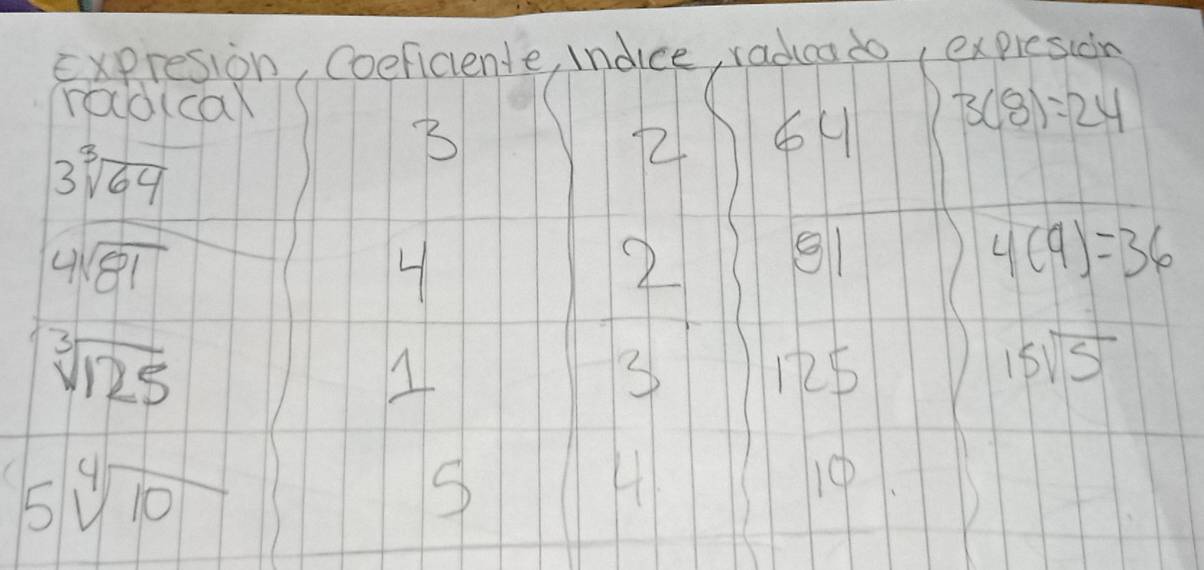 Expresión, Coeficiente, Indice, radicado, expresión
radical
3∛64 3 2 64 3(8)=24
4√81 4 2 81 4(9)=36
∛125 1 3 125 15√5
5∜10 5 4 10